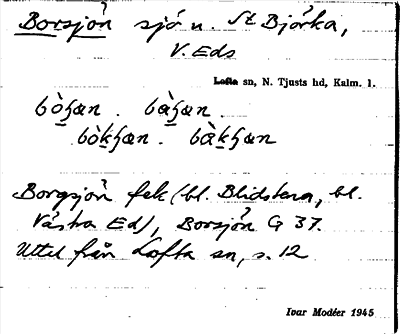 Borsjön sjö n. St Björka,
V. Eds
Lofta sn, N. Tjusts hd, Kalm. l.
bòɧæn . bàɧæn .
bòkɧæn . bàkɧæn
Borgsjön fek (bl. Blidstena, bl.
Västra Ed), Borsjön G 37.
Uttal från Lofta sn, s. 12
Ivar Modéer 1945